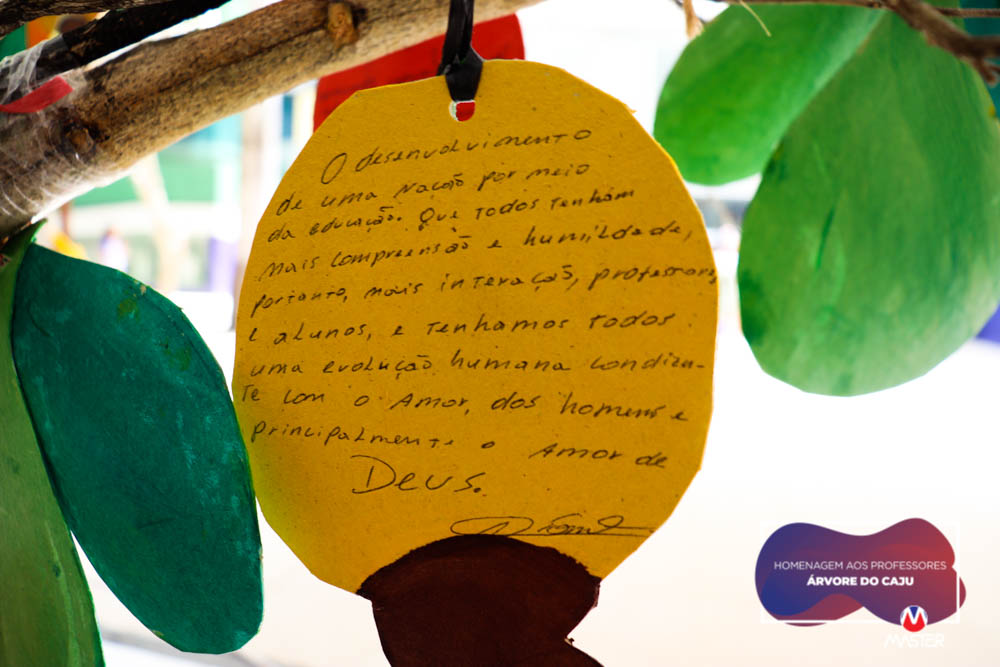 O desenvolvimento
de uma nação por meio
da educação. Que todos tenham
mais compreensão e humildade,
portanto, mais interação, professores
e alunos, e tenhamos todos
uma evolução humana condizen-
te com o Amor, dos homens e
principalmente o Amor de
Deus.
HOMENAGEM AOS PROFESSORES
ÁRVORE DO CAJU
M
MASTER